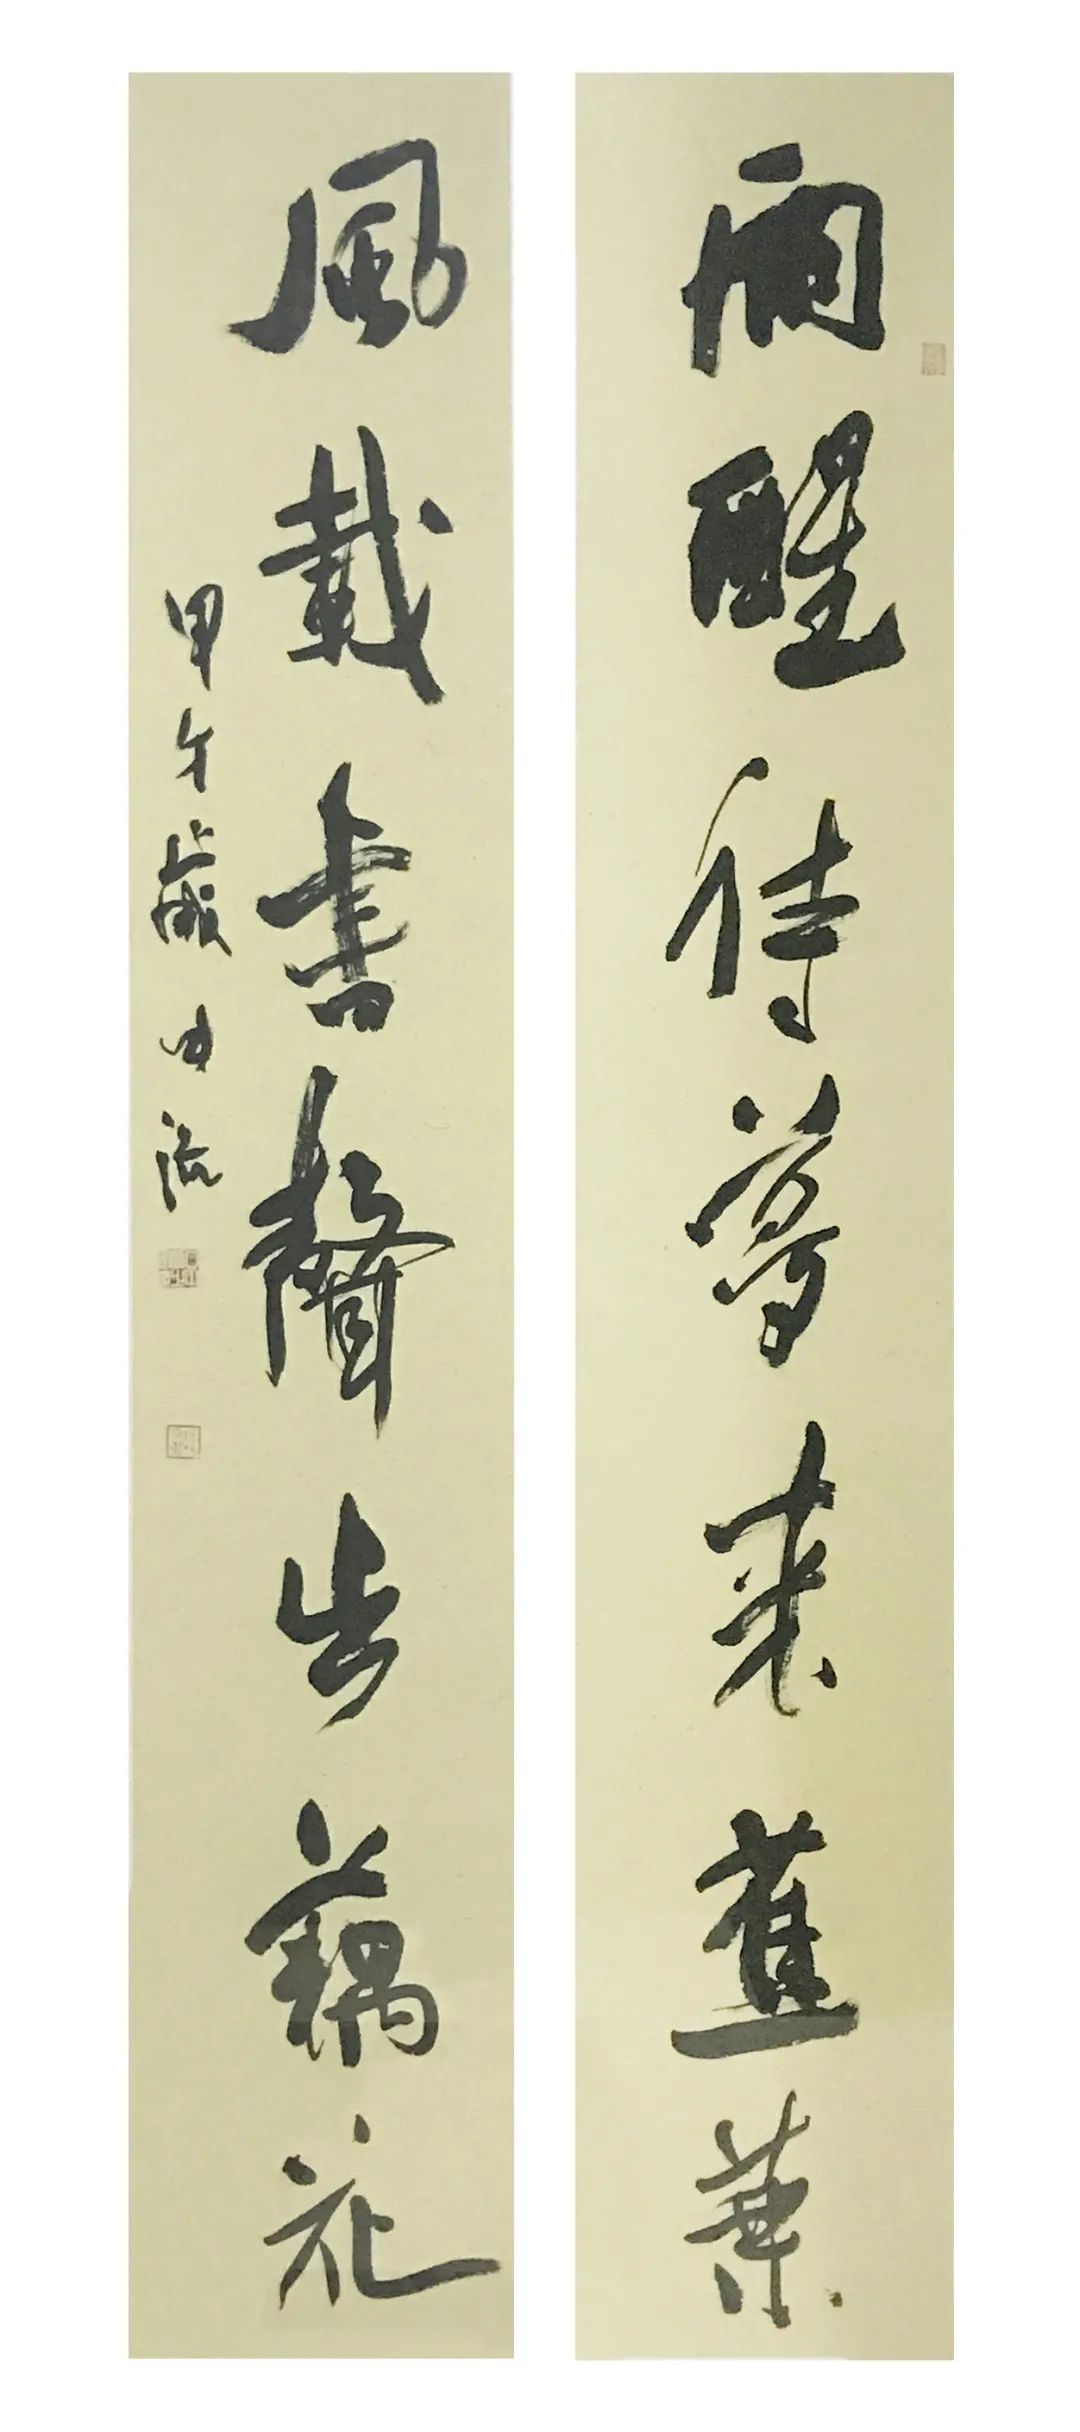 雨醒詩夢來蕉葉
風載書聲出藕花
甲午